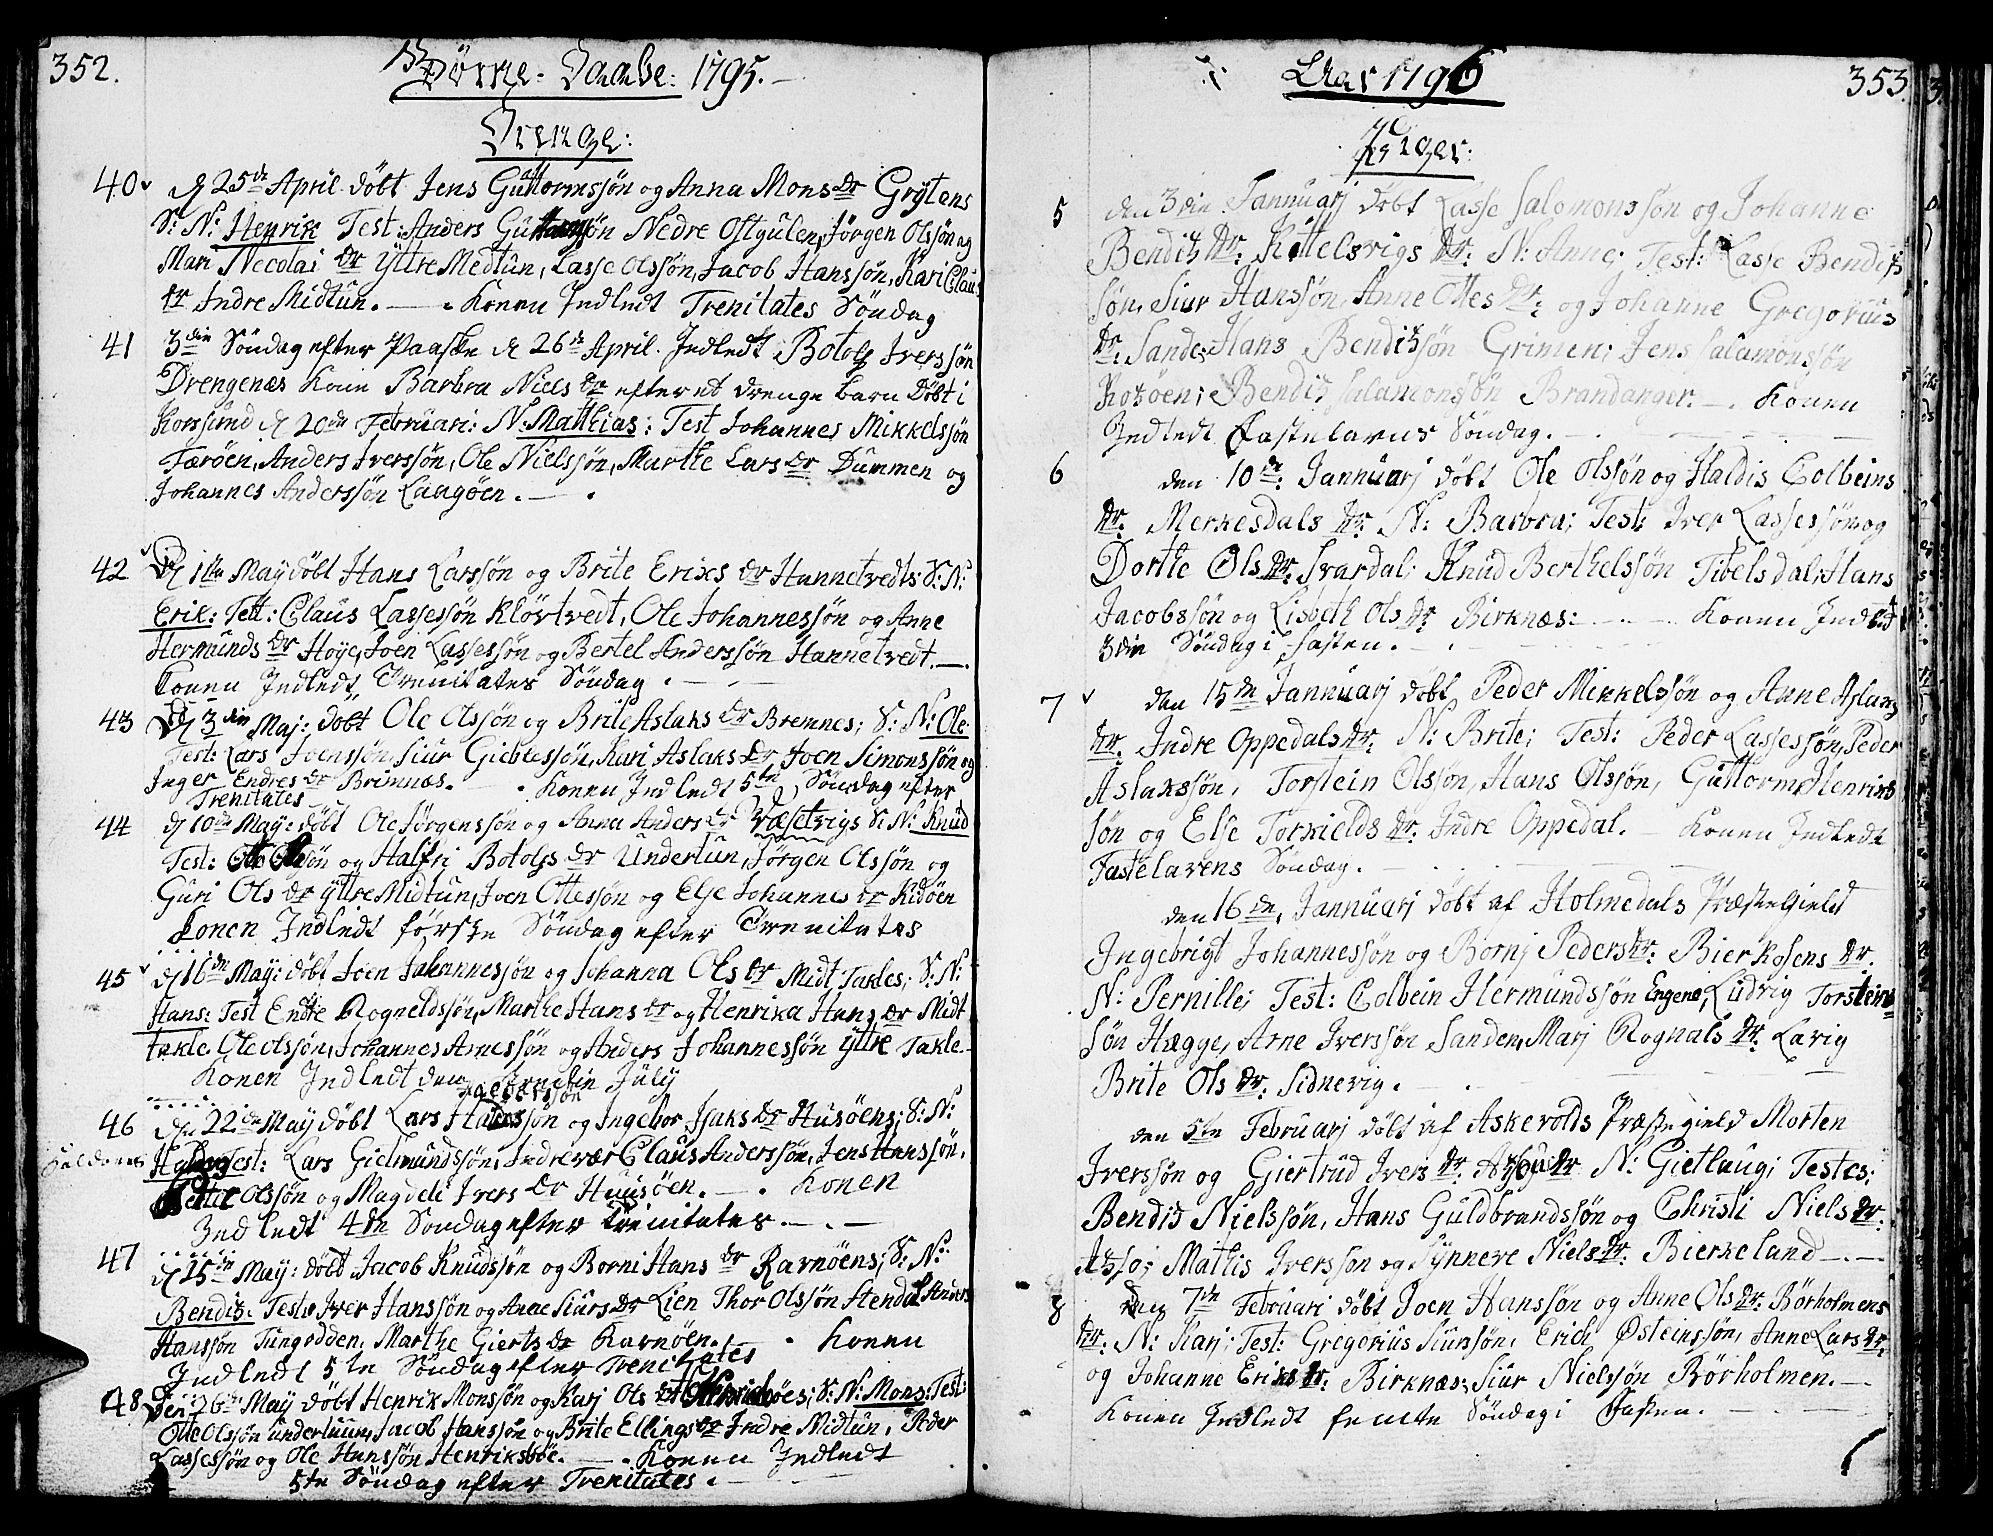 352.
Börne-Daabe: 1795.
Drenge:
40 d 25de April döbt Jens Guttormssön og Anna Mons dr Grytens
S: N: Henrik Test: Anders Guttormssön Nedre Ostgulen, Jörgen Olssön og
Mari Necolai dr Yttre Medtun, Lasse Olssön, Jacob Hanssön, Kari Claus
dr Indre Midtun. Konen Indledt Trenitates Söndag
41 3die Söndag efter Paaske d 26de April Indledt Botolf Iverssön
Drengenæs Kone Barbra Niels dr efter et drenge barn Döbt i
Korssund d 20de Februari: N: Mathias: Test Johannes Mikkelssön
Færöen, Anders Iverssön, Ole Nielssön, Marthe Lars dr Dummen og
Johannes Anderssön Langöen.
42 d 1ste May döbt Hans Larssön og Brite Eriks dr Hannetvedts: S: N:
Erik: Test: Claus Lassessön Klövtvedt, Ole Johannessön og Anne
Hermunds dr Høye, Joen Lassessön og Bertel Anderssön Hannetvedt.
Konen Indledt Trenitates Söndag.
43 d 3die Maj: döbt Ole Olssön og Brite Aslaks dr Bremnes; S: N: Ole
Test: Lars Joenssön, Siur Giebtessön, Kari Aslaks dr, Joen Simonssön og
Inger Endres dr Brimnæs. Konen Indledt 5te Söndag efter
Trenitates
44 d 10de May: döbt Ole Jörgenssön og Anna Anders dr Væsetvigs S: N: Knud
Test: Ole Olssön og Halfri Botolfs dr Undertun, Jörgen Olssön og
Guri Ols dr Yttre Midtun, Joen Ottessön og Else Johannes dr Kidöen
Konen Indledt förske Söndag efter Trenitates
45 d 16de May: döbt Joen Johannessön og Johanna Ols dr Midt Takles; S: N:
Hans: Test Endre Rogneldssön, Marthe Hans dr og Henrika Hans dr Midt
takle. Ole Olssön, Johannes Arnessön og Anders Johannessön Yttre Takle.
Konen Indledt den July
46 den 22de May döbt Lars sön og Ingebor Isaks dr Husöens; S: N:
Test: Lars Gietmundssön, Indrevær Claus Anderssön, Jens Hanssön,
Olssön og Magdeli Ivers dr Huusöen. Konen
Indledt 4de Söndag efter Trenitates.
47 d 25de May: döbt Jacob Knudssön og Borni Hans dr Ravnöens; S: N:
Bendix: Test: Iver Hanssön og Anne Siurs dr Lien Thor Olssön Stendal Anders
Hanssön Tungodden, Marthe Gierts dr Ravnöen. Konen
Indledt 5te Söndag efter Trenitates
48 Den 26de May döbt Henrik Monssön og Karj Ols dr Henriksböes; S: N: Mons: Test:
Otte Olssön undertuun, Jacob Hanssön og Brite Ellings dr Indre Midtun, Peder
Lassessön og Ole Hanssön Henriksböe. Konen Indledt
5te Söndag efter Trenitates.
Aar 1796
353.
Piger:
5 den 3die Jannuarj döbt Lasse Salomonssön og Johanne
Bendix dr: Kittelsvigs dr: N: Anne; Test: Lasse Bendix
sön, Siur Hanssön, Anne Ottes dr: og Johanne Gregorius
dr: Sande; Hans Bendixsön Grimen; Jens Salamonssön
Kozöen; Bendix Salamonssön Brandanger. Konen
Indledt Fastelavns Söndag.
6 den 10de: Jannuarj döbt Ole Olssön og Haldis Colbeins
dr: Merkesdals dr: N: Barbra; Test: Iver Lassessön og
Dorthe Ols dr: Svardal; Knud Berthelssön Tibelsdal; Hans
Jacobssön og Lisbeth Ols dr: Birknæs: Konen Indledt
3die Söndag i fasten.
7 den 15de Jannuarj döbt Peder Mikkelssön og Anne Aslaks
dr: Indre Oppedals dr: N: Brite; Test: Peder Lassessön, Peder
Aslakssön, Torstein Olssön, Hans Olssön, Guttorm Henriks
sön og Else Torkields dr: Indre Oppedal. Konen Indledt
Fastelavens Söndag.
den 16de, Jannuarj döbt af Holmedals Præstegield
Ingebrigt Johannessön og Bornj Peders dr: Bierkosens dr.
N: Pernille; Test: Colbein Hermundssön Engene, Ludvig Torsteins
sön Hægge, Arne Iverssön Sanden, Marj Rognals dr: Lavig
Brite Ols dr: Sidnevig.
den 5te Februarj döbt af Askevolds Præstegield Morten
Iverssön og Giertrud Ivers dr: dr N: Gietlaug; Testes:
Bendix Nielssön, Hans Guldbrandssön og Christi Niels dr:
Mathis Iverssön og Synneve Niels dr: Bierkeland
8 den 7de Februarj döbt Joen Hanssön og Anne Ols dr: Börholmens
dr: N: Karj; Test: Gregorius Siurssön, Erich Østeinssön, Anne Lars dr:
og Johanne Eriks dr: Birknæs; Siur Nielssön Börholmen.
Konen Indledt femte Söndag i Fasten.